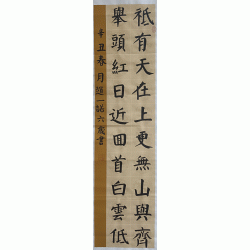 祗有天在上更無山與齊
舉頭紅日近回首白雲低
辛丑春月 一 六歲書